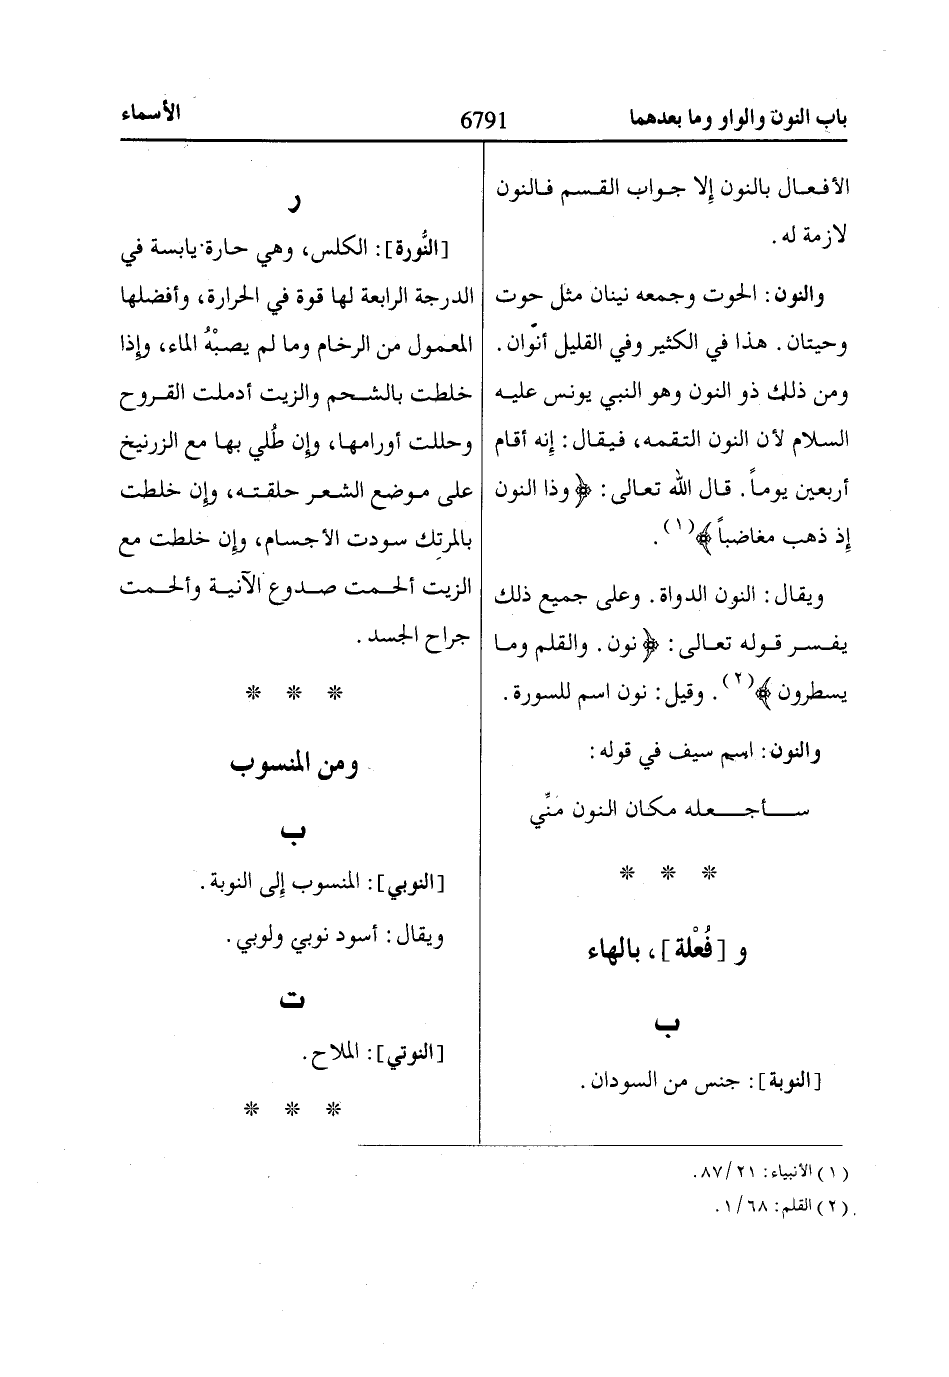 باب النون والواو وما بعدهما 6791 الأسماء
الأفعال بالنون إلا جواب القسم فالنون
لازمة له.
والنون: الحوت وجمعه نينان مثل حوت
وحيتان. هذا في الكثير وفي القليل أنّوان.
ومن ذلك ذو النون وهو النبي يونس عليه
السلام لأن النون التقمه، فيقال: إنه أقام
أربعين يوماً. قال الله تعالى: ﴿وذا النون
إذ ذهب مغاضباً﴾(١).
ويقال: النون الدواة. وعلى جميع ذلك
يفسر قوله تعالى: ﴿نون. والقلم وما
يسطرون﴾(٢). وقيل: نون اسم للسورة.
والنون: اسم سيف في قوله:
سأجعله مكان النون منِّي
* * *
و [فُعْلة]، بالهاء
ب
[النوبة]: جنس من السودان.
ر
[النُّورة]: الكلس، وهي حارة يابسة في
الدرجة الرابعة لها قوة في الحرارة، وأفضلها
المعمول من الرخام وما لم يصبْهُ الماء، وإذا
خلطت بالشحم والزيت أدملت القروح
وحللت أورامها، وإن طُلي بها مع الزرنيخ
على موضع الشعر حلقته، وإن خلطت
بالمرتك سودت الأجسام، وإن خلطت مع
الزيت ألحمت صدوع الآنية وألحمت
جراح الجسد.
* * *
ومن المنسوب
ب
[النوبي]: المنسوب إلى النوبة.
ويقال: أسود نوبي ولوبي.
ت
[النوتي]: الملاح.
* * *
(١) الأنبياء: ٢١/٨٧.
(٢) القلم: ٦٨/١.